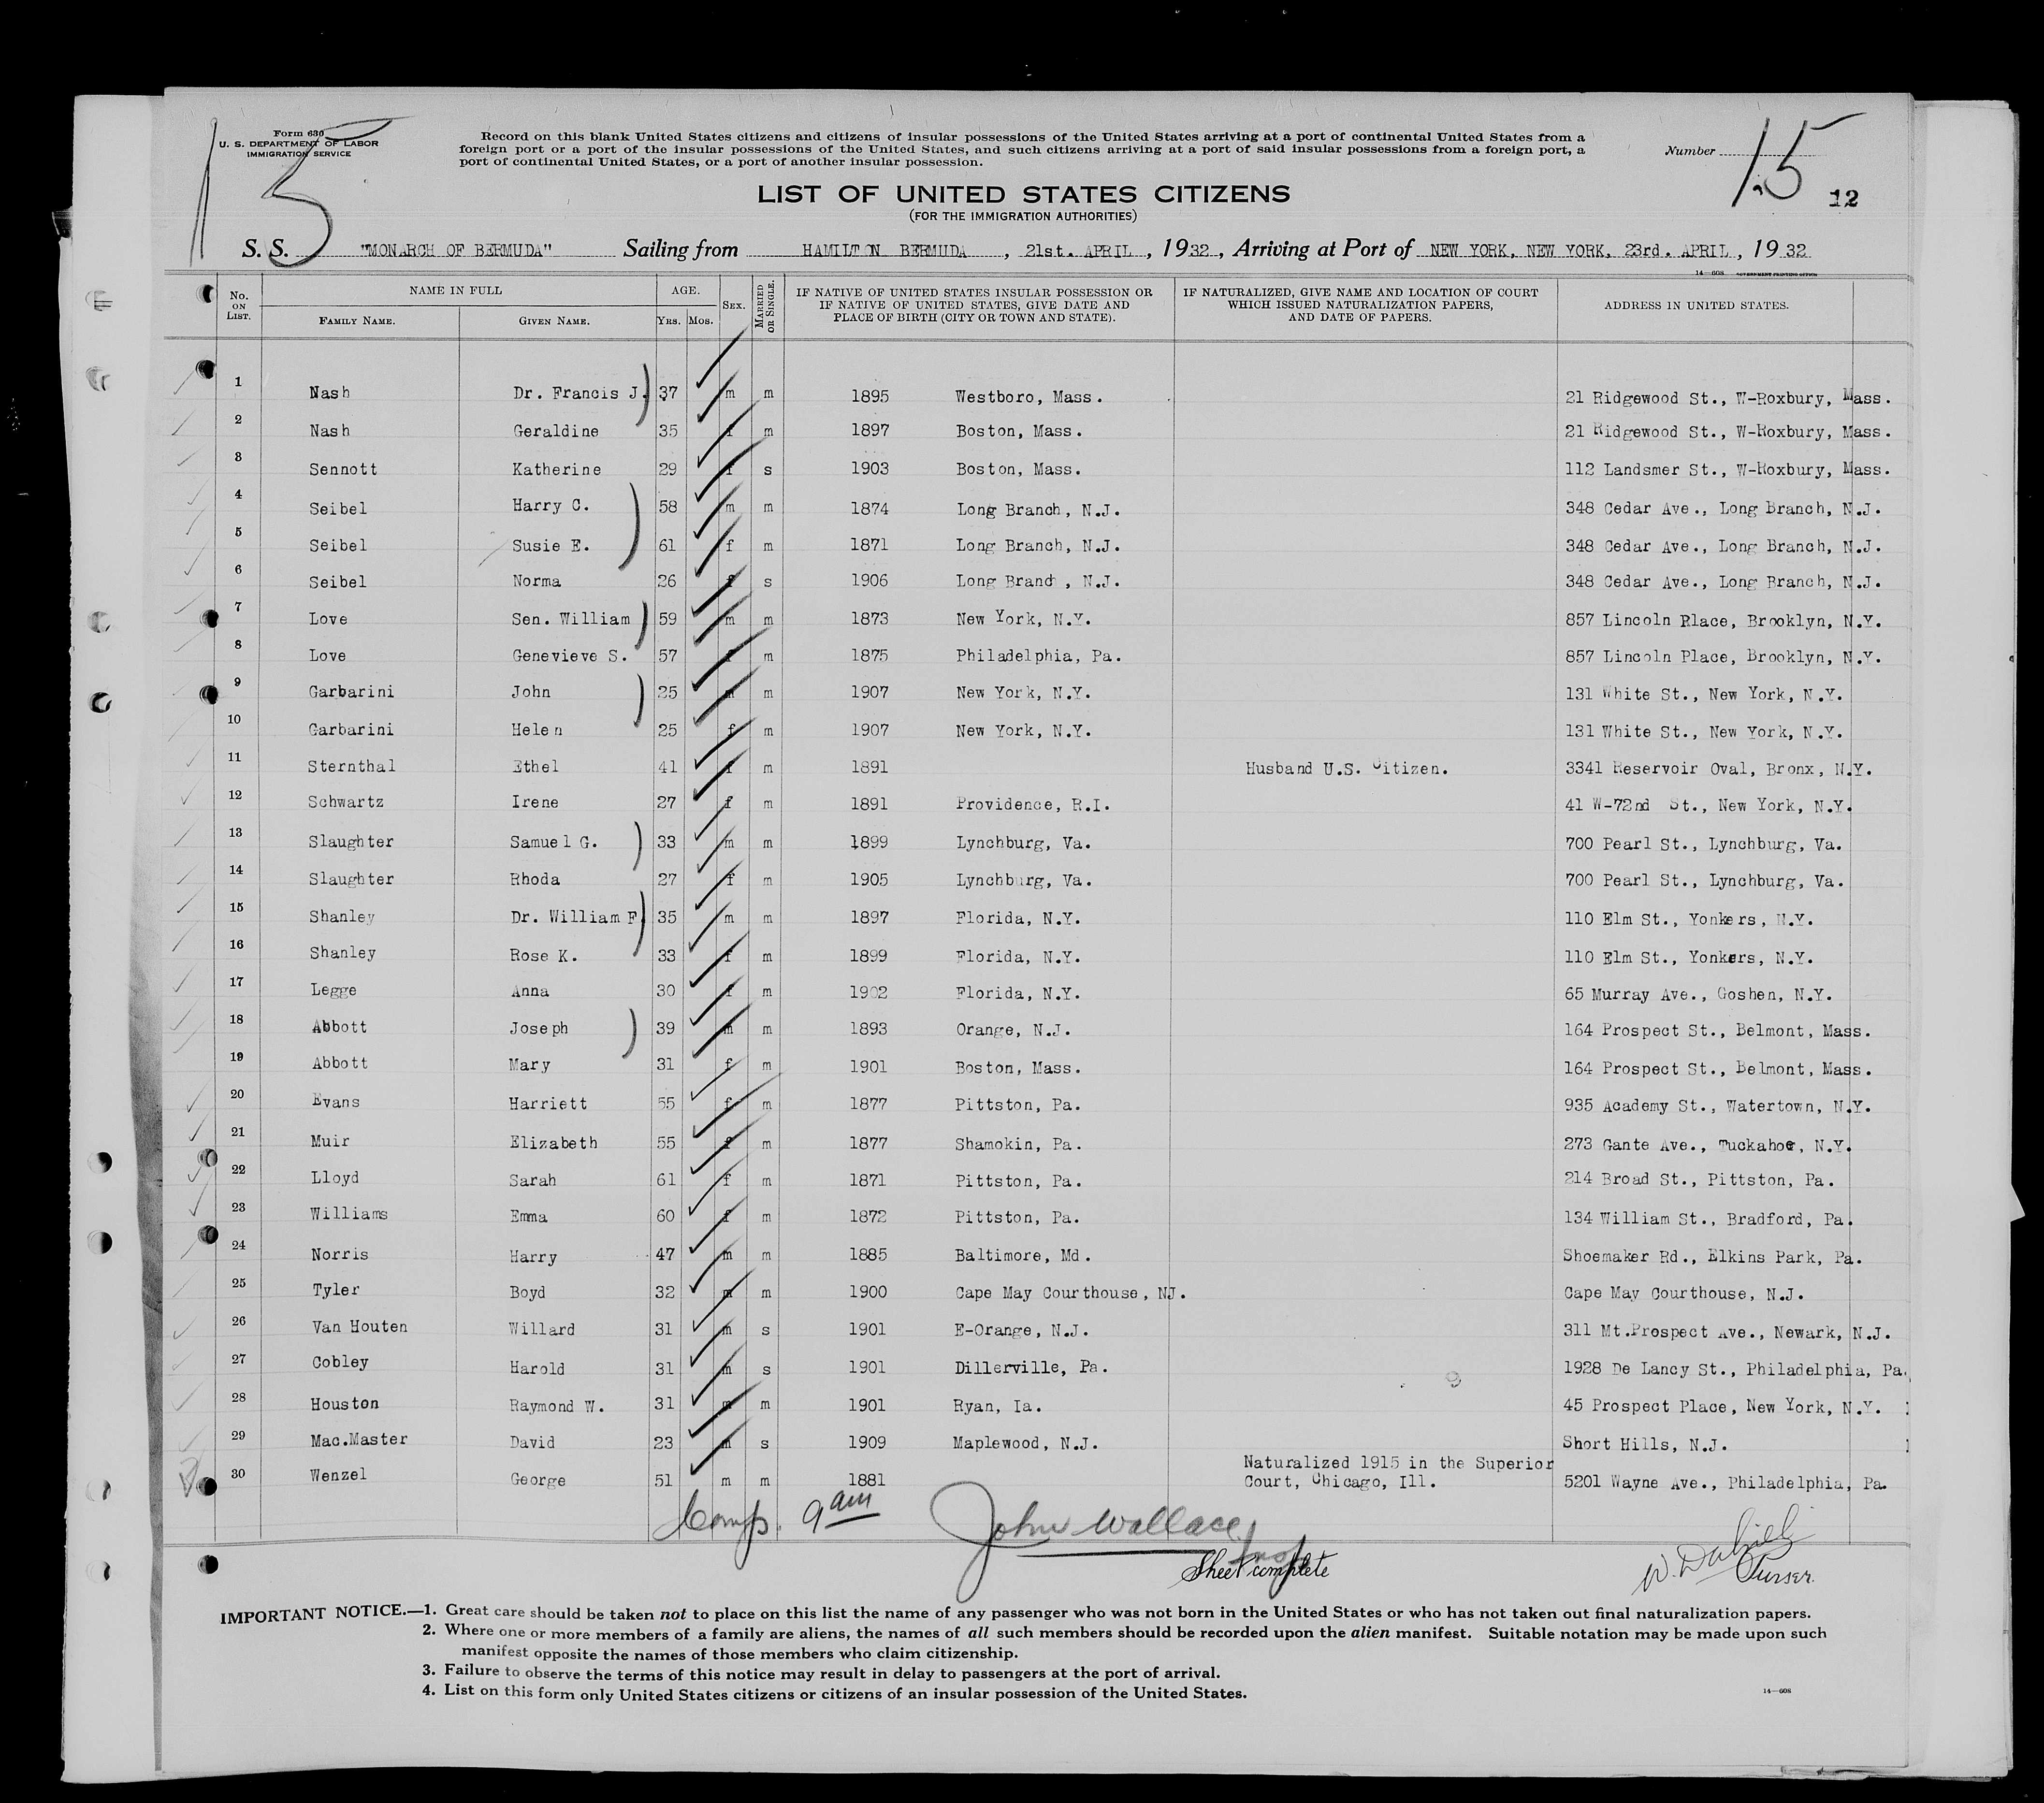 15
Form 630
U. S. DEPARTMENT OF LABOR
IMMIGRATION SERVICE
Record on this blank United States citizens and citizens of insular possessions of the United States arriving at a port of continental United States from a
foreign port or a port of the insular possessions of the United States, and such citizens arriving at a port of said insular possessions from a foreign port, a
port of continental United States, or a port of another insular possession.
Number 15
12
LIST OF UNITED STATES CITIZENS
(FOR THE IMMIGRATION AUTHORITIES)
S. S. "MONARCH OF BERMUDA" Sailing from HAMILTON BERMUDA, 21st. APRIL, 1932, Arriving at Port of NEW YORK, NEW YORK, 23rd. APRIL, 1932
14—608 GOVERNMENT PRINTING OFFICE
No. ON LIST. NAME IN FULL FAMILY NAME. GIVEN NAME. AGE. YRS. MOS. SEX. MARRIED OR SINGLE. IF NATIVE OF UNITED STATES INSULAR POSSESSION OR IF NATIVE OF UNITED STATES, GIVE DATE AND PLACE OF BIRTH (CITY OR TOWN AND STATE). IF NATURALIZED, GIVE NAME AND LOCATION OF COURT WHICH ISSUED NATURALIZATION PAPERS, AND DATE OF PAPERS. ADDRESS IN UNITED STATES.
1 Nash Dr. Francis J. 37 m m 1895 Westboro, Mass. 21 Ridgewood St., W-Roxbury, Mass.
2 Nash Geraldine 35 f m 1897 Boston, Mass. 21 Ridgewood St., W-Roxbury, Mass.
3 Sennott Katherine 29 f s 1903 Boston, Mass. 112 Landsmer St., W-Roxbury, Mass.
4 Seibel Harry C. 58 m m 1874 Long Branch, N.J. 348 Cedar Ave., Long Branch, N.J.
5 Seibel Susie E. 61 f m 1871 Long Branch, N.J. 348 Cedar Ave., Long Branch, N.J.
6 Seibel Norma 26 f s 1906 Long Branch, N.J. 348 Cedar Ave., Long Branch, N.J.
7 Love Sen. William 59 m m 1873 New York, N.Y. 857 Lincoln Place, Brooklyn, N.Y.
8 Love Genevieve S. 57 f m 1875 Philadelphia, Pa. 857 Lincoln Place, Brooklyn, N.Y.
9 Garbarini John 25 m m 1907 New York, N.Y. 131 White St., New York, N.Y.
10 Garbarini Helen 25 f m 1907 New York, N.Y. 131 White St., New York, N.Y.
11 Sternthal Ethel 41 f m 1891 Husband U.S. Citizen. 3341 Reservoir Oval, Bronx, N.Y.
12 Schwartz Irene 27 f m 1891 Providence, R.I. 41 W-72nd St., New York, N.Y.
13 Slaughter Samuel G. 33 m m 1899 Lynchburg, Va. 700 Pearl St., Lynchburg, Va.
14 Slaughter Rhoda 27 f m 1905 Lynchburg, Va. 700 Pearl St., Lynchburg, Va.
15 Shanley Dr. William F. 35 m m 1897 Florida, N.Y. 110 Elm St., Yonkers, N.Y.
16 Shanley Rose K. 33 f m 1899 Florida, N.Y. 110 Elm St., Yonkers, N.Y.
17 Legge Anna 30 f m 1902 Florida, N.Y. 65 Murray Ave., Goshen, N.Y.
18 Abbott Joseph 39 m m 1893 Orange, N.J. 164 Prospect St., Belmont, Mass.
19 Abbott Mary 31 f m 1901 Boston, Mass. 164 Prospect St., Belmont, Mass.
20 Evans Harriett 55 f m 1877 Pittston, Pa. 935 Academy St., Watertown, N.Y.
21 Muir Elizabeth 55 f m 1877 Shamokin, Pa. 273 Gante Ave., Tuckahoe, N.Y.
22 Lloyd Sarah 61 f m 1871 Pittston, Pa. 214 Broad St., Pittston, Pa.
23 Williams Emma 60 f m 1872 Pittston, Pa. 134 William St., Bradford, Pa.
24 Norris Harry 47 m m 1885 Baltimore, Md. Shoemaker Rd., Elkins Park, Pa.
25 Tyler Boyd 32 m m 1900 Cape May Courthouse, NJ. Cape May Courthouse, N.J.
26 Van Houten Willard 31 m s 1901 E-Orange, N.J. 311 Mt.Prospect Ave., Newark, N.J.
27 Cobley Harold 31 m s 1901 Dillerville, Pa. 1928 De Lancy St., Philadelphia, Pa.
28 Houston Raymond W. 31 m m 1901 Ryan, Ia. 45 Prospect Place, New York, N.Y.
29 Mac.Master David 23 m s 1909 Maplewood, N.J. Short Hills, N.J.
30 Wenzel George 51 m m 1881 Naturalized 1915 in the Superior Court, Chicago, Ill. 5201 Wayne Ave., Philadelphia, Pa.
Comp. 9 am John Wallace
Insp
Sheet complete
Purser
IMPORTANT NOTICE.—1. Great care should be taken not to place on this list the name of any passenger who was not born in the United States or who has not taken out final naturalization papers.
2. Where one or more members of a family are aliens, the names of all such members should be recorded upon the alien manifest. Suitable notation may be made upon such
manifest opposite the names of those members who claim citizenship.
3. Failure to observe the terms of this notice may result in delay to passengers at the port of arrival.
4. List on this form only United States citizens or citizens of an insular possession of the United States.
14—608